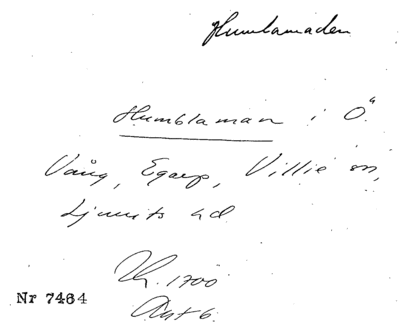 Humlamaden
Humblaman i Ö.
Vång, Egarp, Villie sn,
Ljunits hd
Lk. 1700
Akt 6
Nr 7464